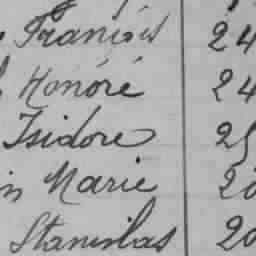 François 24
Honoré 24
Isidore 25
Marie 20
Stanislas 20